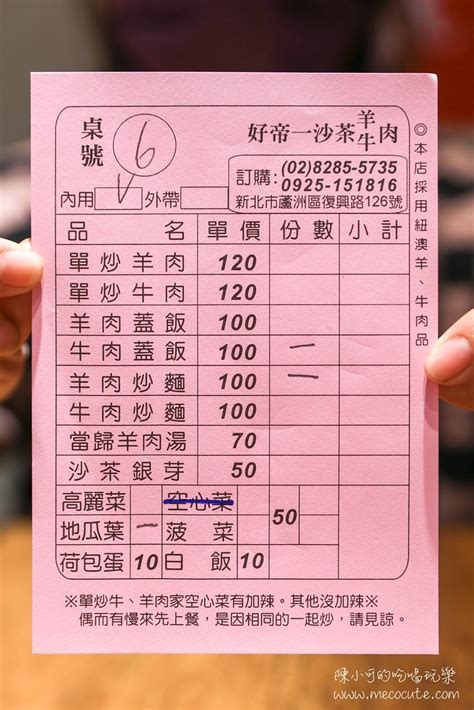 桌號 6
好帝一沙茶羊牛肉
內用 V 外帶
訂購:(02)8285-5735
0925-151816
新北市蘆洲區復興路126號
◎本店採用紐澳羊、牛肉品
品名 單價 份數 小計
單炒羊肉 120
單炒牛肉 120
羊肉蓋飯 100
牛肉蓋飯 100 一
羊肉炒麵 100 一
牛肉炒麵 100
當歸羊肉湯 70
沙茶銀芽 50
高麗菜 空心菜 50
地瓜葉 一 菠菜
荷包蛋 10 白飯 10
※單炒牛、羊肉家空心菜有加辣。其他沒加辣※
偶而有慢來先上餐,是因相同的一起炒,請見諒。
陳小可的吃喝玩樂
www.mecocute.com